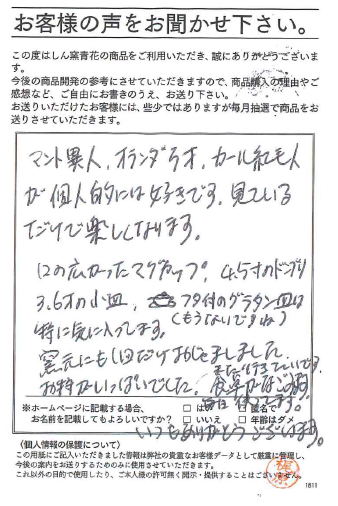 お客様の声をお聞かせ下さい。
この度はしん窯青花の商品をご利用いただき、誠にありがとうございます。
今後の商品開発の参考にさせていただきますので、商品購入の理由やご
感想など、ご自由にお書きのうえ、お送り下さい。
お送りいただけたお客様には、些少ではありますが毎月抽選で商品をお
送りさせていただきます。
マント異人、オランダ うオ、カール紅毛人
が個人的には好きです。見ている
だけで楽しくなります。
口の広かったマグカップ、4.5寸のドンブリ
3.6寸の小皿、フタ付のグラタン皿は
(もうないですね)
特に気に入ってます。
窯元にも1回だけおじゃましました。
また行きたいです。
お客様がいっぱいでした。
毎日使ってます。
※ホームページに記載する場合、 □ はい □ 匿名で
お名前を記載してもよろしいですか? □ いいえ □ 年齢はダメ
いつもありがとうございます。
〈個人情報の保護について〉
この用紙にご記入いただきました情報は弊社の貴重なお客様データとして厳重に管理し、
今後の案内をお送りするためのみに使用させていただきます。
これ以外の目的で使用したり、ご本人様の許可無く開示・提供することはございません。
1811